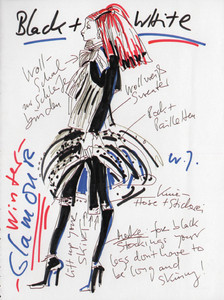 Black + White
Woll-
Schal
mit Schleife
binden
Wollweiß
Sweater
Rock +
Pailletten
Winter-
Glamour
Knie-
Hose + Stickerei
for black
stockings your
legs don't have to
be long and
skinny!